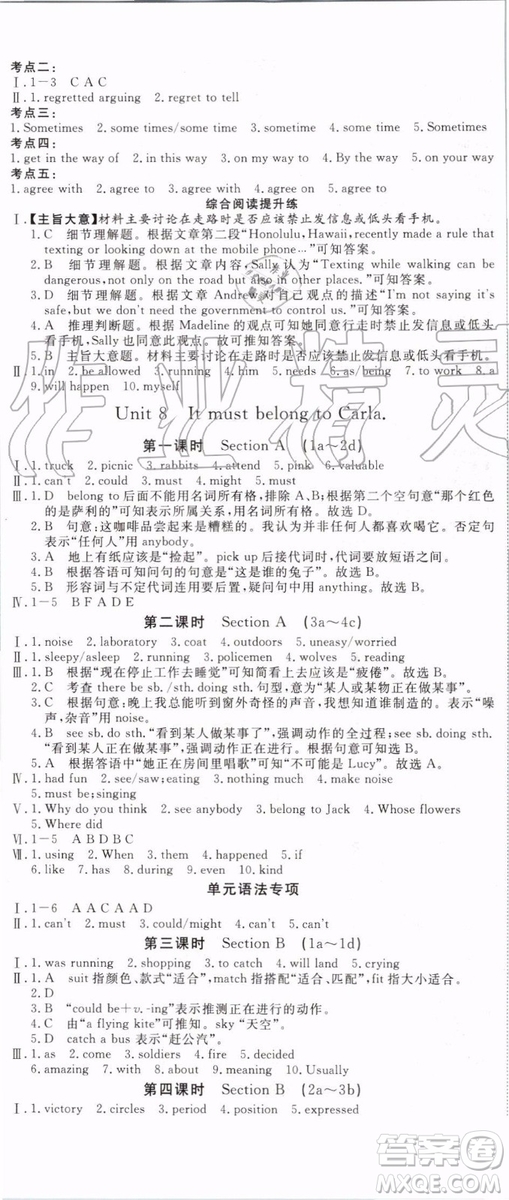 考点二：
Ⅰ. 1-3 CAC
Ⅱ. 1. regretted arguing 2. regret to tell
考点三：
1. Sometimes 2. some times/some time 3. some time 4. Sometimes
考点四：
1. get in the way of 2. in this way 3. on my way to 4. By the way 5. on your way
考点五：
1. agree with 2. agree on 3. agree with 4. agree on 5. agree to
综合阅读提升练
Ⅰ.【主旨大意】材料主要讨论在走路时是否应该禁止发信息或低头看手机。
1. C 细节理解题。根据文章第二段“Honolulu, Hawaii, recently made a rule that
texting or looking down at the mobile phone…”可知答案。
2. B 细节理解题。根据文章内容，Sally 认为“Texting while walking can be
dangerous, not only on the road but also in other places.”可知答案。
3. D 细节理解题。根据文章 Andrew 对自己观点的描述“I'm not saying it's
safe, but we don't need the government to control us.”可知答案。
4. A 推理判断题。根据 Madeline 的观点可知她同意行走时禁止发信息或低头
看手机，Sally 也同意此观点。故可推出答案。
5. B 主旨大意题。材料主要讨论在走路时是否应该禁止发信息或低头看手机。
Ⅱ. 1. in 2. be allowed 3. running 4. him 5. needs 6. as/being 7. to work 8. a
9. will happen 10. myself
Unit 8 It must belong to Carla.
第一课时 Section A (1a～2d)
Ⅰ. 1. truck 2. picnic 3. rabbits 4. attend 5. pink 6. valuable
Ⅱ. 1. can't 2. must 3. could 4. might 5. must
Ⅲ. 1. D belong to 后面不能用名词所有格，排除 A、D，根据第二个空句意“那个红色
的是萨利的”可知表示所属关系，应用名词所有格。故选 D。
2. B 句意：这咖啡品尝起来是糟糕的。我认为没有任何人都喜欢喝它。否定句中
表示“任何人”用 anybody。故选 B。
3. A 地上有纸应该是“捡起”。pick up 后接代词时，代词放短语中间。故选 A。
4. B 根据答语可知问句的句意是“这是谁的兔子”。故选 B。
5. B 形容词与不定代词连用要后置，疑问句中用 anything。故选 B。
Ⅳ. 1-5 BFADE
第二课时 Section A (3a～4c)
Ⅰ. 1. noise 2. laboratory 3. coat 4. outdoors 5. uneasy/worried
Ⅱ. 1. sleepy/asleep 2. running 3. policemen 4. wolves 5. reading
Ⅲ. 1. B 根据“现在停止工作去睡觉”可知简看上去应该是“疲倦”。故选 B。
2. C 考查 there be sb./sth. doing sth. 句型，意为“某人或某物正在做某事”。
3. C 根据句意：晚上我总是听到窗外奇怪的声音，我想知道是谁制造的。表示“噪
声，杂音”用 noise。
4. B see sb. do sth.“看到某人做了某事”，强调动作的全过程；see sb. doing sth.
“看到某人正在做某事”，强调动作正在进行。故选 B。
5. A 根据答语中“她正在房间里唱歌”可知“不可能是 Lucy”。故选 A。
Ⅳ. 1. had fun 2. see/saw; eating 3. nothing much 4. make noise
5. must be; singing
Ⅴ. 1. Why do you think 2. see anybody 3. belong to Jack 4. Whose flowers
5. Where did
Ⅵ. 1-5 ABDBC
Ⅶ. 1. using 2. When 3. them 4. worried 5. if
6. like 7. has 8. because 9. expressed 10. is
单元语法专项
Ⅰ. 1-6 AACAAD
Ⅱ. 1. can't 2. must 3. could/might 4. can't 5. must
第三课时 Section B (1a～1d)
Ⅰ. 1. was running 2. shopping 3. to catch 4. will land 5. crying
Ⅱ. 1. A suit 指颜色、款式“适合”，match 指搭配“适合、匹配”，fit 指大小适合。
2. D
3. B “could be＋v.-ing”表示推测正在进行的动作。
4. C 由“a flying kite”可推知。sky“天空”。
5. D catch a bus 表示“赶公汽”。
Ⅲ. 1. as 2. come 3. soldiers 4. fire 5. decided
6. amazing 7. with 8. about 9. meaning 10. Usually
第四课时 Section B (2a～3b)
Ⅰ. 1. victory 2. circles 3. period 4. position 5. expressed
作业精灵
答案圈